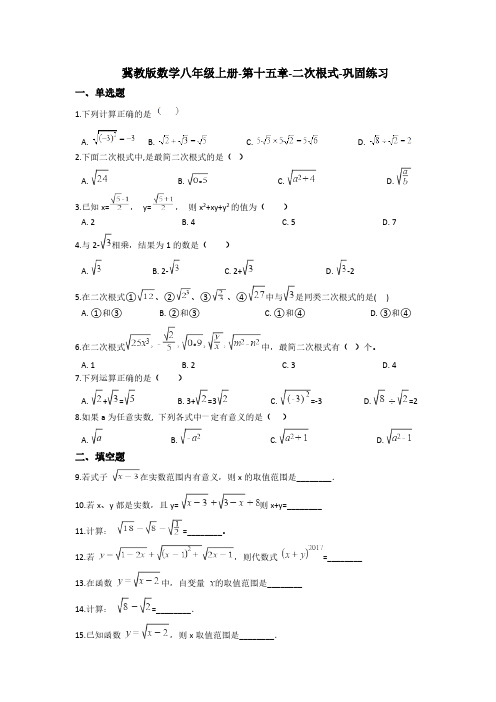 冀教版数学八年级上册-第十五章-二次根式-巩固练习
一、单选题
1.下列计算正确的是（ ）
A. √(-3)²=-3 B. √2+√3=√5 C. 5√3×5√2=5√6 D. √8÷√2=2
2.下面二次根式中,是最简二次根式的是（ ）
A. √24 B. √0.5 C. √a²+4 D. √a/b
3.已知 x=(√5-1)/2， y=(√5+1)/2， 则 x²+xy+y² 的值为（ ）
A. 2 B. 4 C. 5 D. 7
4.与 2-√3相乘，结果为 1 的数是（ ）
A. √3 B. 2-√3 C. 2+√3 D. √3-2
5.在二次根式①√12、②√2³、③√2/3、④√27中与√3是同类二次根式的是( )
A. ①和③ B. ②和③ C. ①和④ D. ③和④
6.在二次根式√25x³，-√2/5，√0.9，√y/x，√m²-n²中，最简二次根式有（ ）个。
A. 1 B. 2 C. 3 D. 4
7.下列运算正确的是（ ）
A. √2+√3=√5 B. 3+√2=3√2 C. √(-3)²=-3 D. √8÷√2=2
8.如果 a 为任意实数, 下列各式中一定有意义的是（ ）
A. √a B. √-a² C. √a²+1 D. √a²-1
二、填空题
9.若式子 √x-3 在实数范围内有意义，则 x 的取值范围是________．
10.若 x、y 都是实数，且 y= √x-3+√3-x+8则 x+y=________
11.计算： √18-√8-√1/2 =________。
12.若 y=√1-2x+√(x-1)²+√2x-1，则代数式 (x+y)²⁰¹⁷=________
13.在函数 y=√x-2 中，自变量 x的取值范围是________
14.计算： √8-√2=________．
15.已知函数 y=√x-2，则 x 取值范围是________．